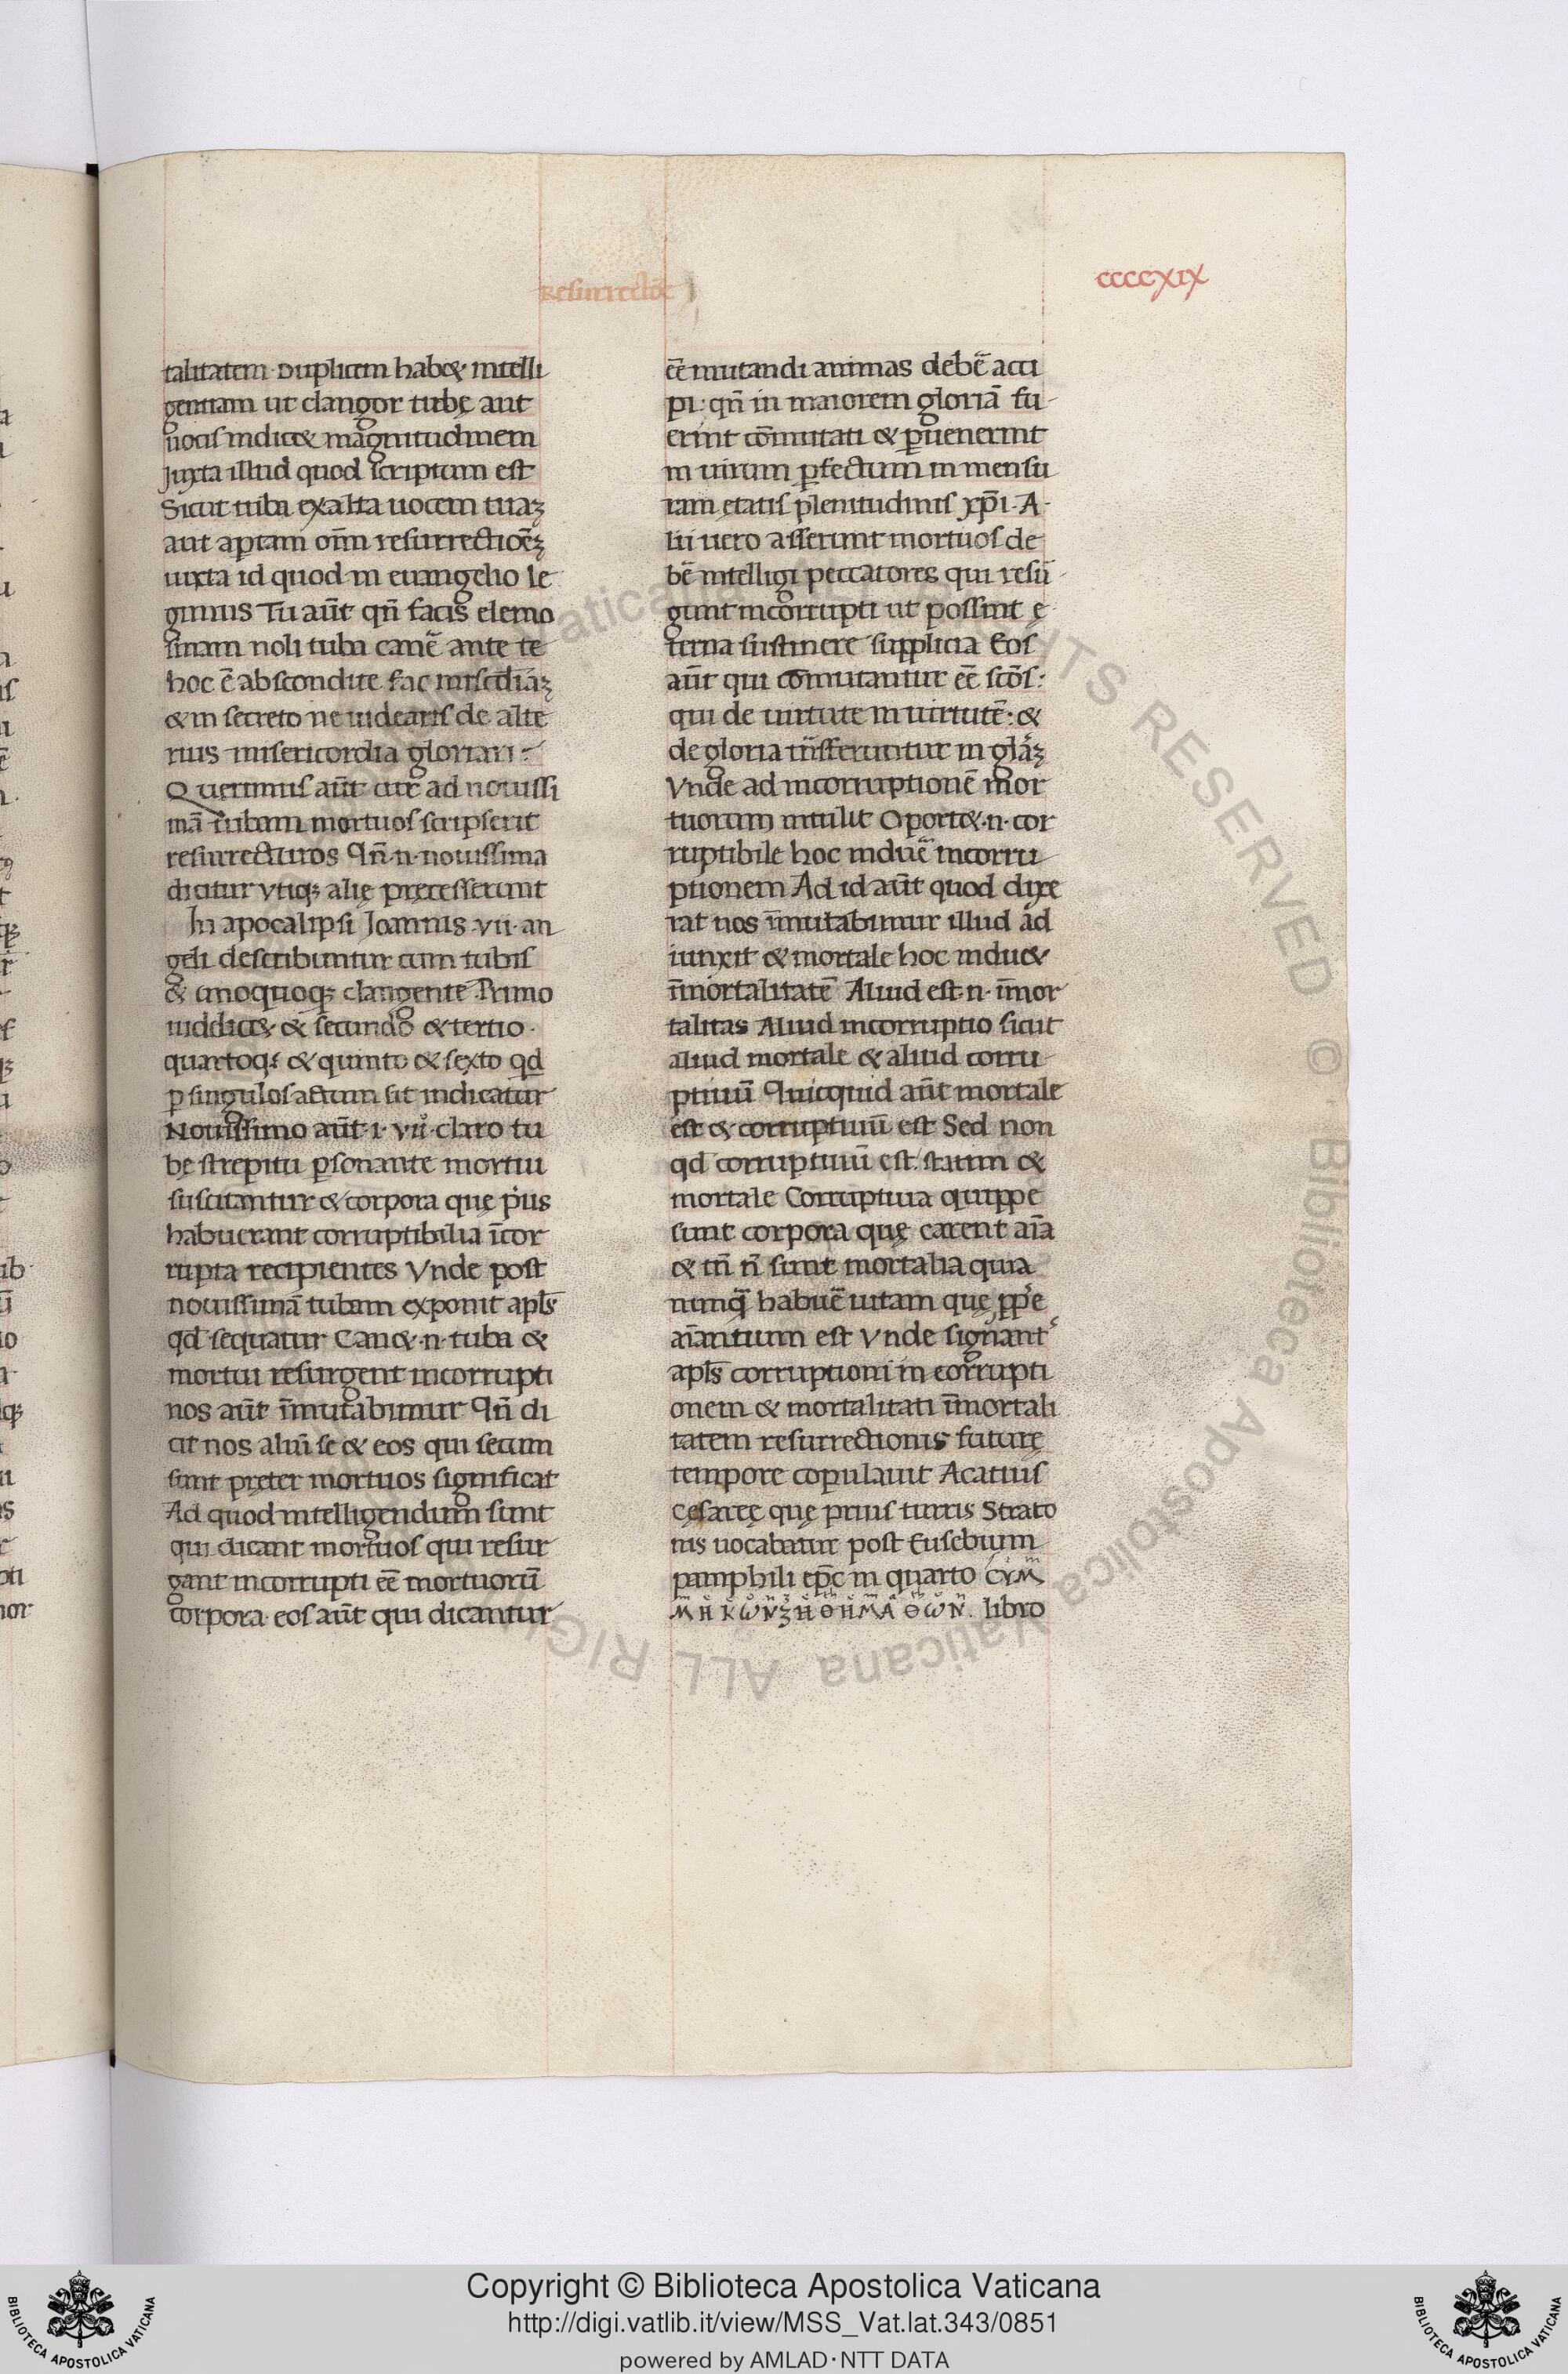 resurrectōe
ccccxix
talitatem. Duplicem hab&· intelli
gentiam ut clangor tubę aut
uocis indic& magnitudinem
Juxta illud quod scriptum est
Sicut tuba exalta uocem tuaꝫ
aut aꝑtam om̄i resurrectioēꝫ
iuxta id quod in euangelio le
gimus Tu aūt qn̄ facis elemo
sinam noli tuba canē ante te
hoc ē abscondite fac misc̄diāꝫ
& in secreto ne uidearis de alte
rius misericordia gloriari:
Querimus aūt cur ad nouissi
mā tubam mortuos scripserit
resurrecturos Qn̄ .n. nouissima
dicitur vtiqꝫ alię pręcesserunt
In apocalipsi Joannis .vii. an
geli describuntur cum tubis
& unoquoqꝫ clangente Primo
uiddic& & secundo & tertio.
quartoqꝫ & quinto & sexto qd̄
ꝑ singulos actum sit indicatur
Nouissimo aūt .i. vii. claro tu
bę strepitu ꝑsonante mortui
suscitantur & corpora quę p̓us
habuerant corruptibilia īcor
rupta recipientes Vnde post
nouissimā tubam exponit apl̄s
qd̄ sequatur Can& .n. tuba &
mortui resurgent incorrupti
nos aūt īmutabimur Qn̄ di
cit nos aliū se & eos qui secum
sunt pręter mortuos significat
Ad quod intelligendum sunt
qui dicant mortuos qui resur
gant incorrupti eē mortuorū
corpora. eos aūt qui dicantur
eē mutandi animas debē acci
pi: qn̄ in maiorem gloriā fu
erint cōmutati & ꝑuenerint
in uirum ꝑfectum in mensu
ram ętatis plenitudinis xp̄i. A
lii uero asserunt mortuos de
bē intelligi peccatores qui resū
gunt incorrupti ut possint ę
terna sustinere supplicia Eos
aūt qui cōmutantur eē sc̄os:
qui de uirtute in uirtutē: &
de gloria tn̄sferuntur in gl̄aꝫ
Vnde ad incorruptionē mor
tuorum intulit Oport& .n. cor
ruptibile hoc induē incorru
ptionem Ad id aūt quod dixe
rat nos īmutabimur illud ad
iunxit & mortale hoc indu&
īmortalitatē Aliud est .n. īmor
talitas Aliud incorruptio sicut
aliud mortale & aliud corru
ptiuū Quicquid aūt mortale
est & corruptiuū est Sed non
qd̄ corruptiuū est. statim &
mortale Corruptiua quippe
sunt corpora quę carent aīa
& tn̄ n̄ sunt mortalia quia
nunq̄ habuē uitam quę ꝓp̓e
aīantium est Vnde signant᷒
apl̄s corruptioni in corrupti
onem & mortalitati īmortali
tatem resurrectionis futurę
tempore copulauit Acatius
Cęsareę quę prius turris Strato
nis uocabatur post Eusebium
pamphili ep̄c in quarto CYM
MHKωNZHΘHMAΘωN. libro
Copyright © Biblioteca Apostolica Vaticana
http://digi.vatlib.it/view/MSS_Vat.lat.343/0851
powered by AMLAD·NTT DATA
BIBLIOTECA APOSTOLICA VATICANA
BIBLIOTECA APOSTOLICA VATICANA